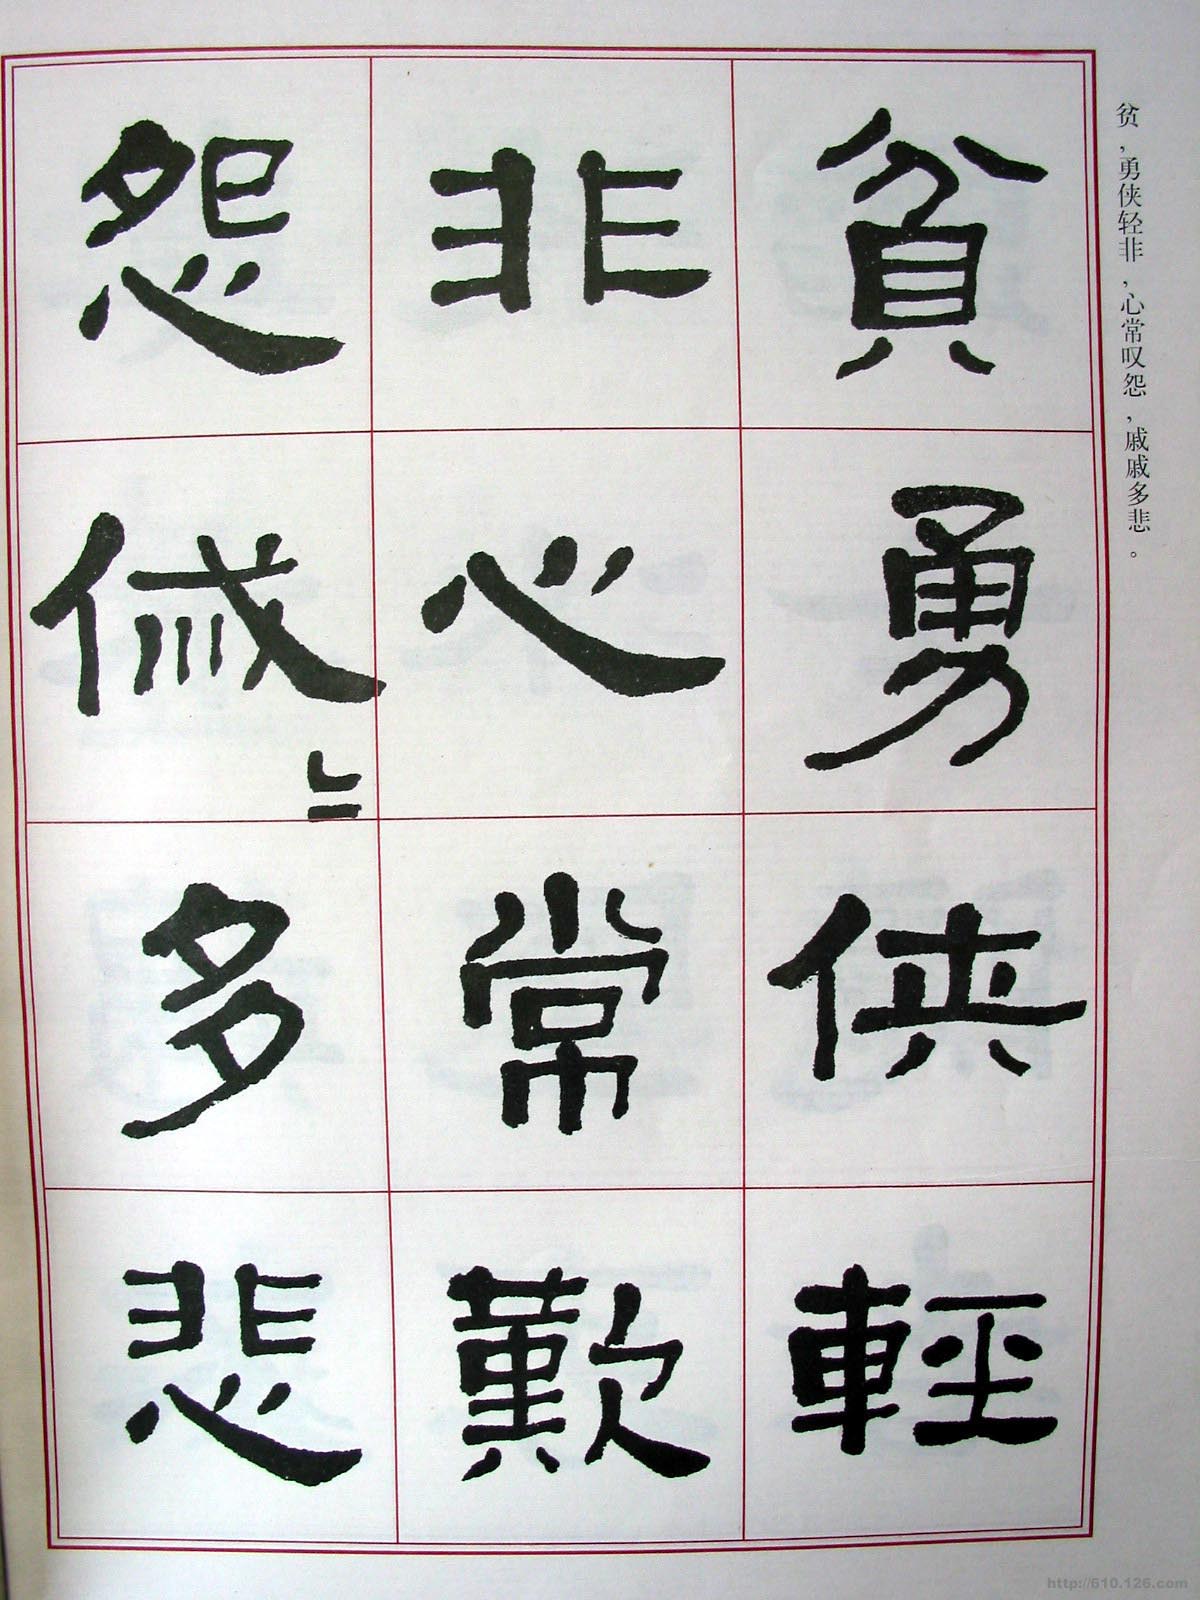 贫，勇侠轻非，心常叹怨，戚戚多悲。
貧勇俠輕
非心常歎
怨傶〻多悲
http://610.126.com